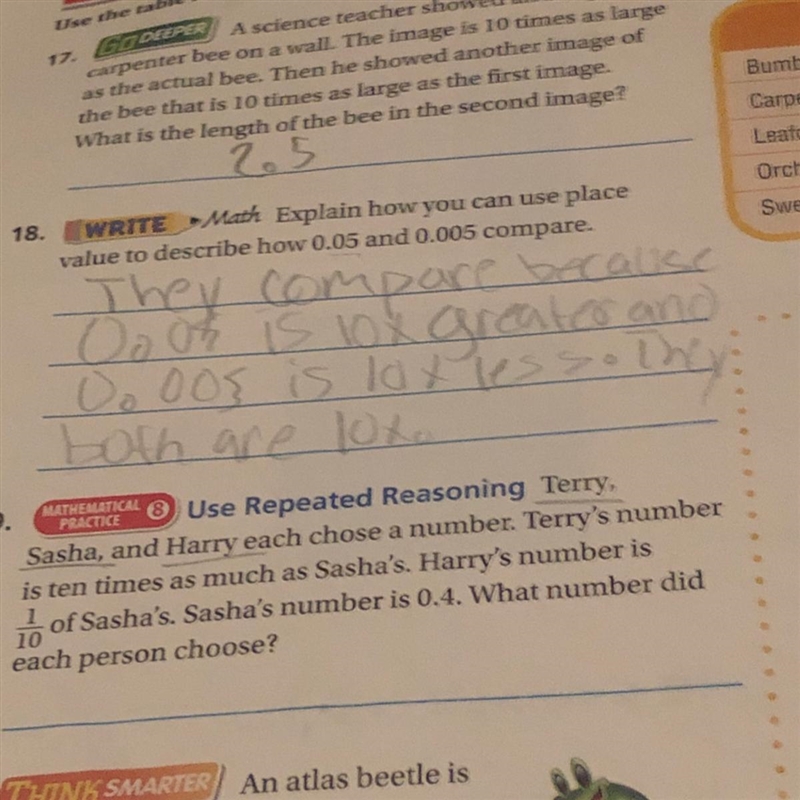 Use the table
17. GO DEEPER A science teacher showed an
carpenter bee on a wall. The image is 10 times as large
as the actual bee. Then he showed another image of
the bee that is 10 times as large as the first image.
What is the length of the bee in the second image?
2.5
18. WRITE Math Explain how you can use place
value to describe how 0.05 and 0.005 compare.
They compare because
0.05 is 10x greater and
0.005 is 10x less. They
both are 10x.
MATHEMATICAL PRACTICE 8 Use Repeated Reasoning Terry,
Sasha, and Harry each chose a number. Terry's number
is ten times as much as Sasha's. Harry's number is
1/10 of Sasha's. Sasha's number is 0.4. What number did
each person choose?
THINK SMARTER An atlas beetle is
Bumb
Carpe
Leafc
Orch
Swe